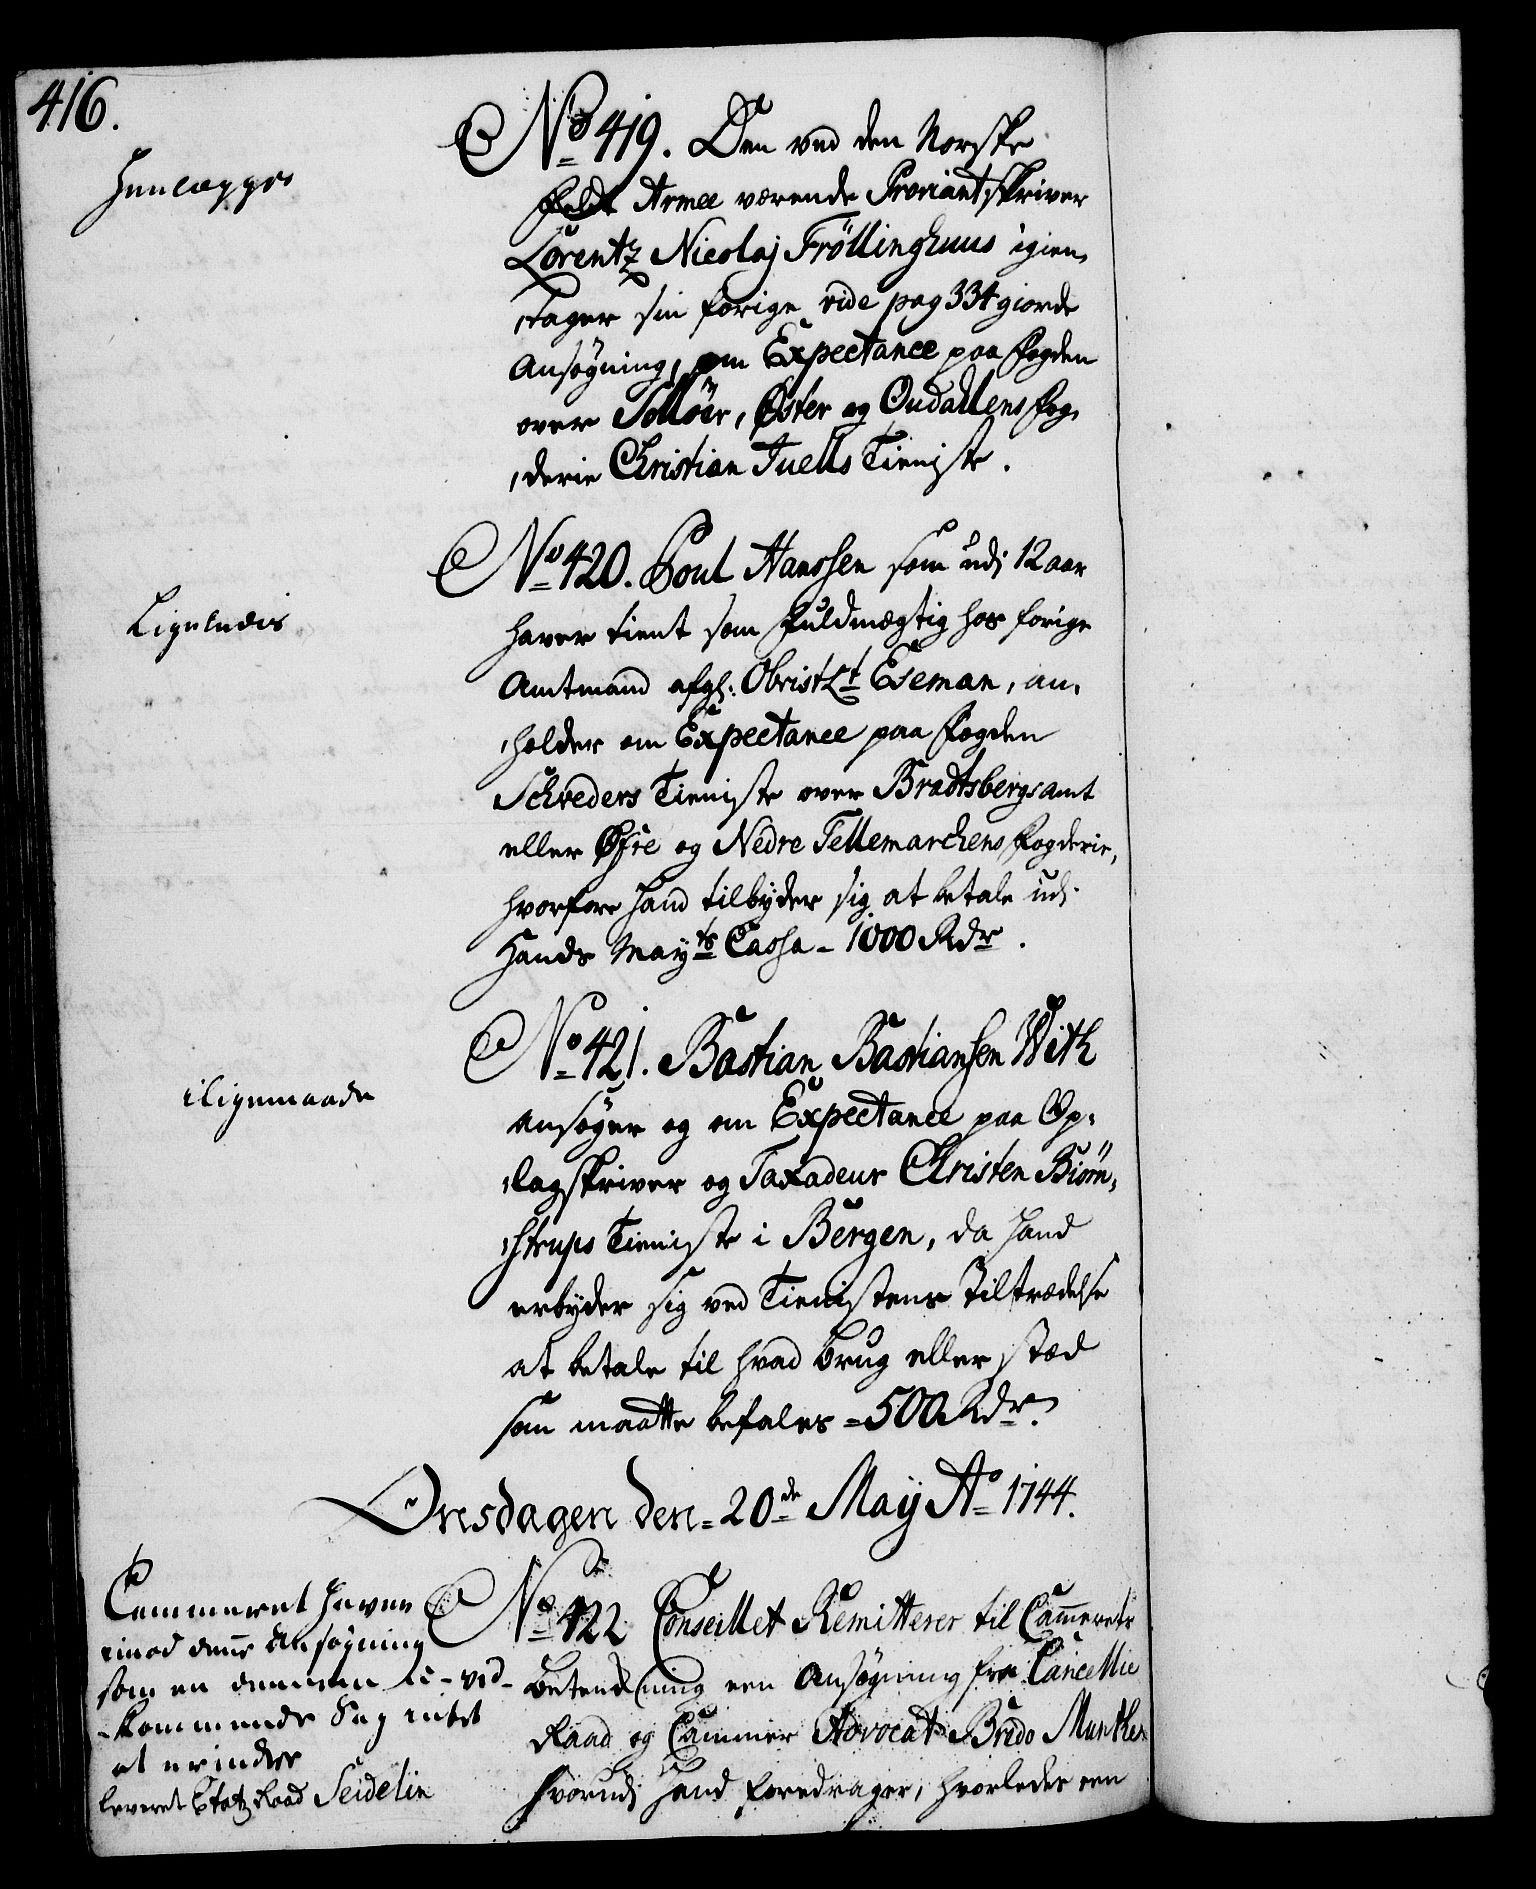 416.
Henlægges
No 419. Den ved den Norske
Feldt Armee værende Proviantskriver
Lorentz Nicolaj Fröllinghuus igien,
,tager sin forige vide pag 334 giorde
Ansøgning, om Expectance paa Fogden
over Solløer, Øster og Oudallens Fog,
,derie Christian Juells Tieniste.
Ligeledis
No 420. Poul Hanssen som udi 12 aar
haver tient som Fuldmægtig hos forige
Amtmand afgl: ObristLt Eseman, an,
,holder om Expectance paa Fogden
Schreders Tieniste over Bradtsbergs amt
eller Øfre og Nedre Tellemarchens Fogderie,
hvorfore hand tilbyder sig at betale udi
Hands Mayts Cassa - 1000 Rdr.
iligemaade
No 421. Bastian Bastiansen With
ansøger og om Expectance paa Op,
,lagskriver og Taxadeur Christen Biørn,
,strups Tieniste i Bergen, da hand
erbyder sig ved Tienistens Tiltrædelse
at betale til hvad brug eller stæd
som maatte befales - 500 Rdr.
Onsdagen den 20de May Ao 1744.
Cammeret haver
imod denne Ansøgning
som en dennem u-ved-
-kommende Sag intet
at erindre
leveret Etatz Raad Seidelin
No 422 Conseillet Remitterer til Cammerets
betenkning een Ansøgning fra Cancellie
Raad og Cammer Advocat Bredo Munthe
hvorudj hand foredrager, hvorledes een